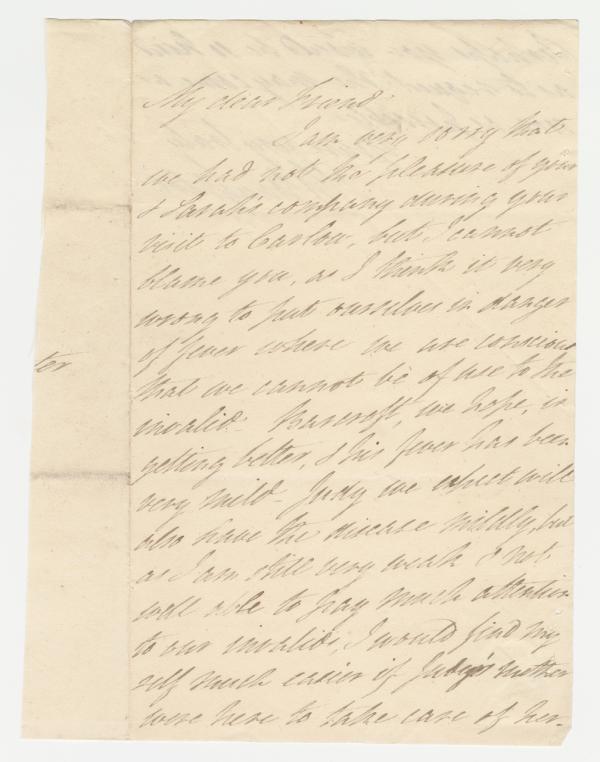 My dear Friend
I am very sorry that
we had not the pleasure of your
& Sarah's company during your
visit to Carlow, but I cannot
blame you, as I think it very
wrong to put ourselves in danger
of fever where we are conscious
that we cannot be of use to the
invalid. Barcroft, we hope, is
getting better, & his fever has been
very mild - Judy we expect will
also have the disease mildly, but
as I am still very weak & not
well able to pay much attention
to our invalids, I would find my
self much easier if Judy's mother
were here to take care of her -
ter